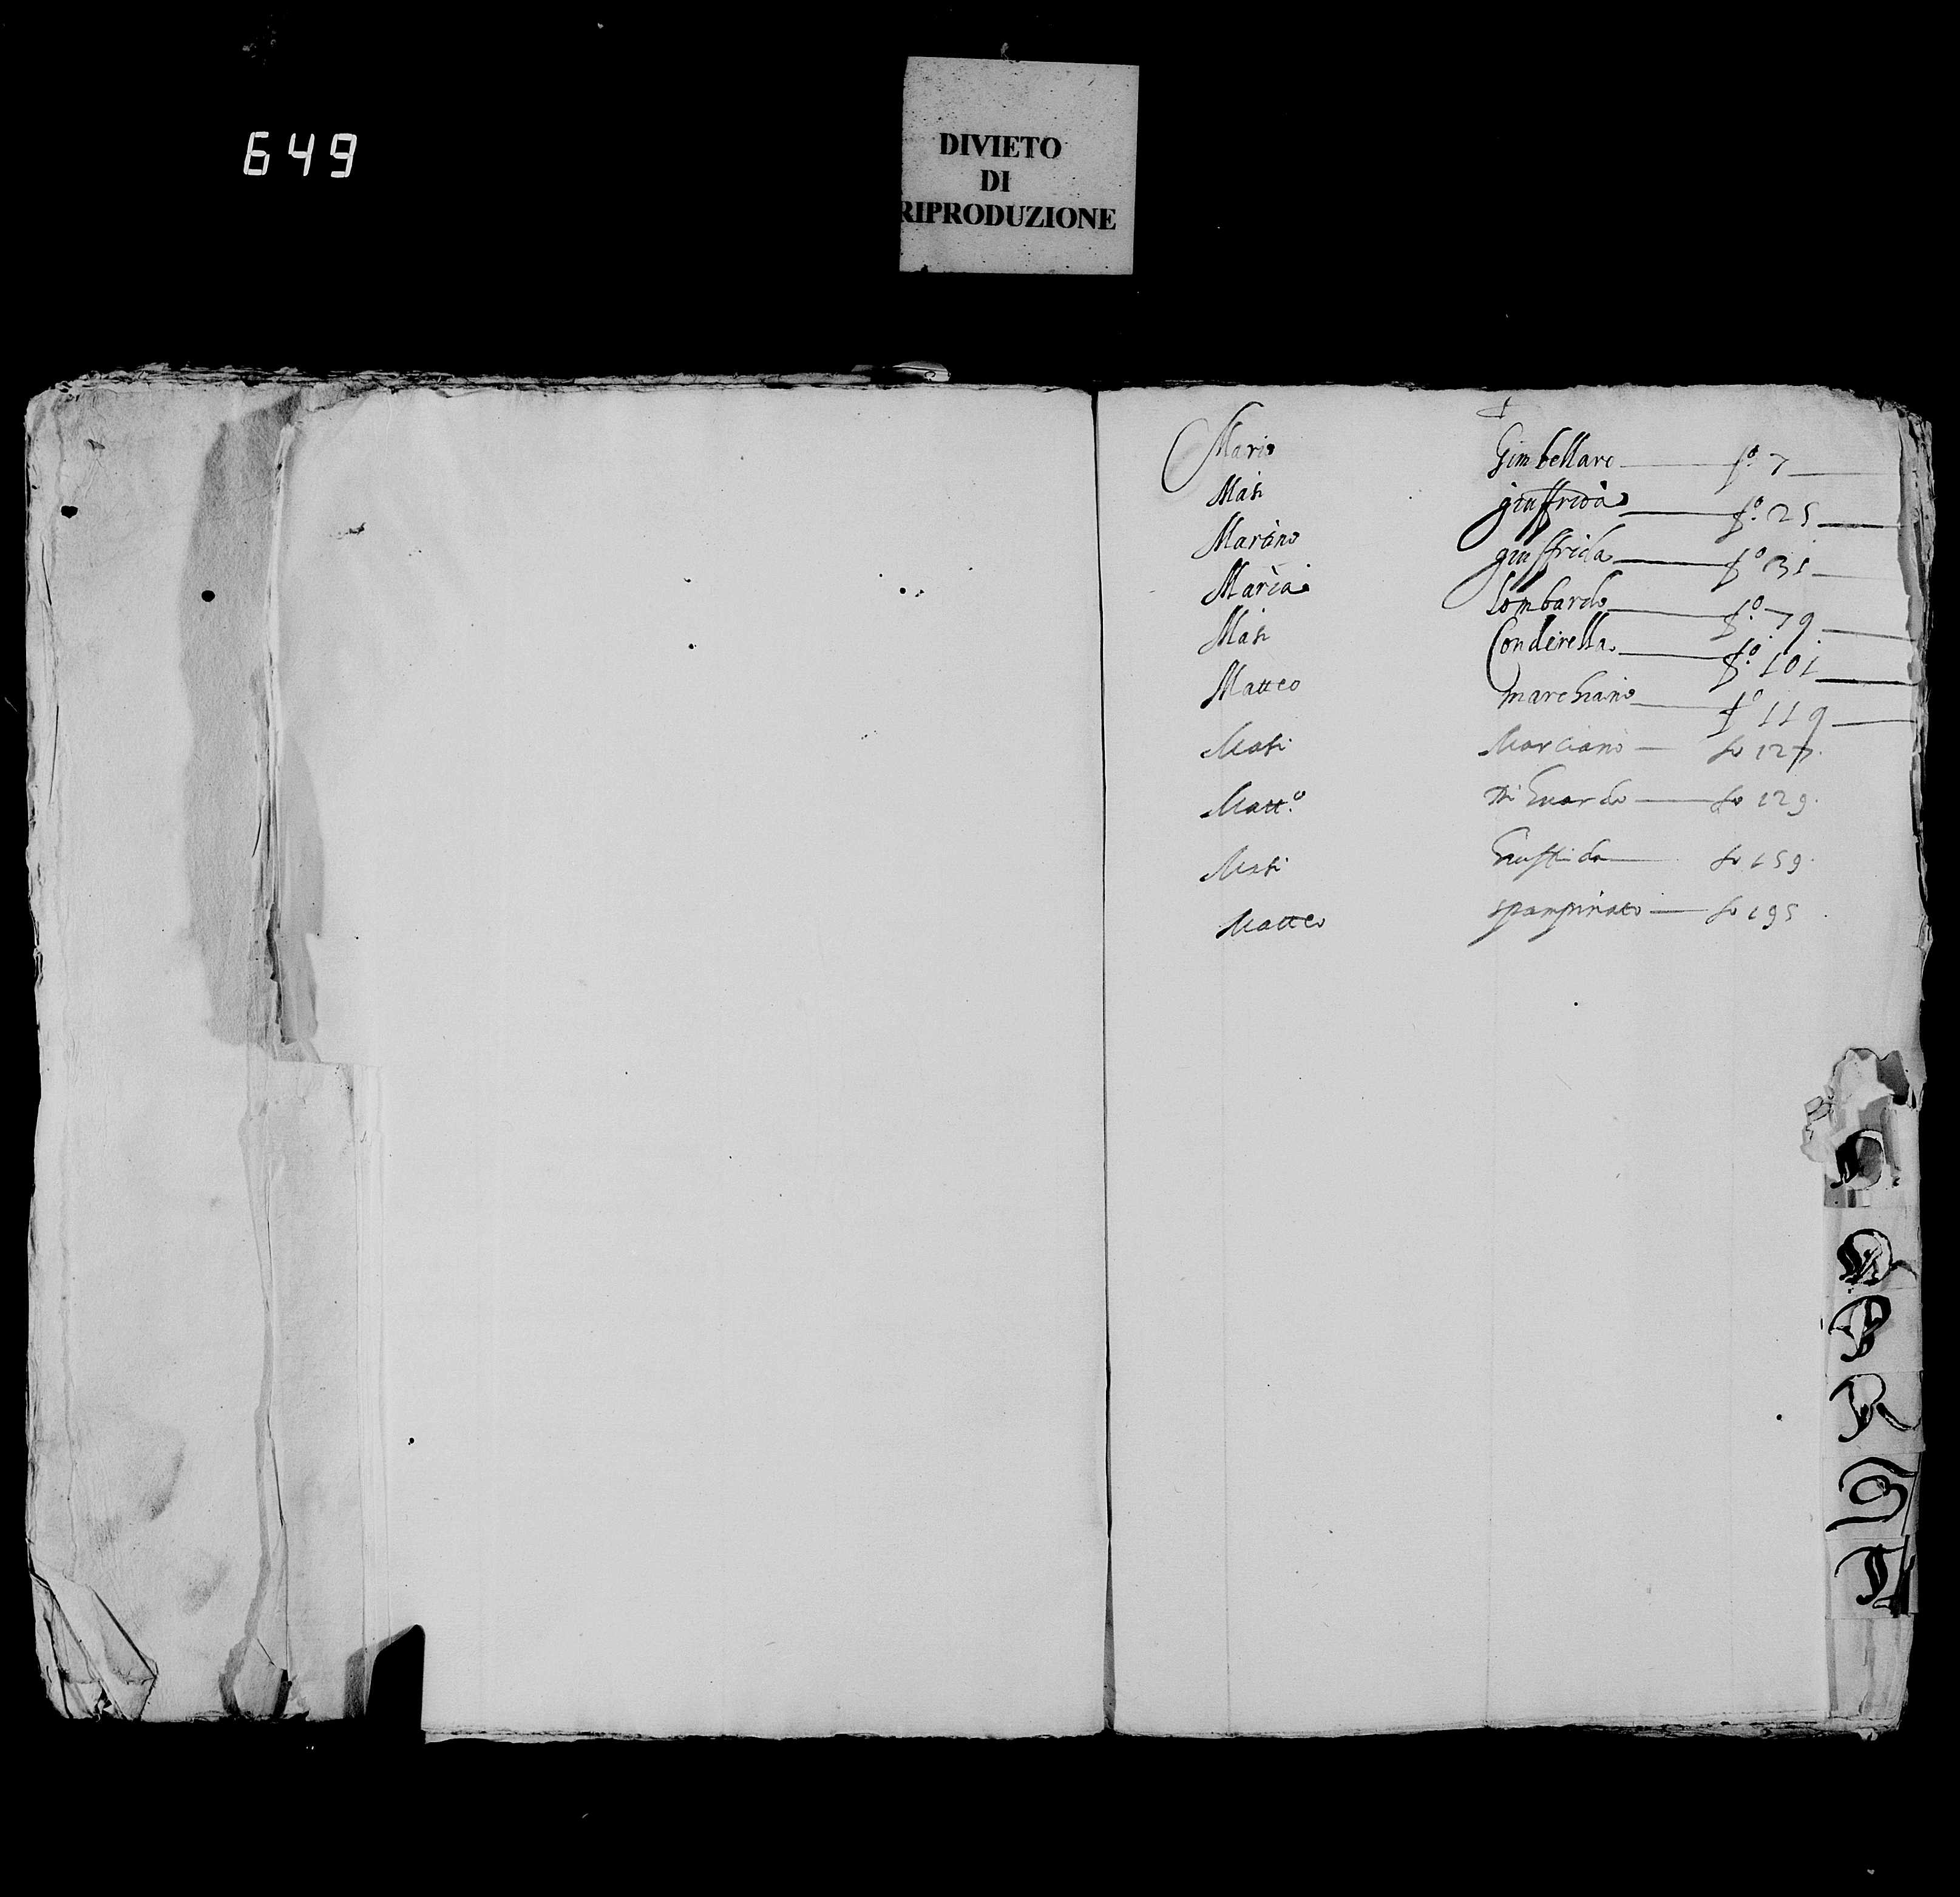 649
DIVIETO
DI
RIPRODUZIONE
Mario Gimbellaro fo. 7
Masi giuffrida fo. 25
Martino giuffrida fo 31
Maria Lombardo fo. 79
Masi Condirella fo. 101
Matteo marchiano fo 119
Masi Marciano fo 127.
Matt.o fo 129.
Masi Giuffrida fo 159.
Matteo spampinato fo 195
P
R
S
T